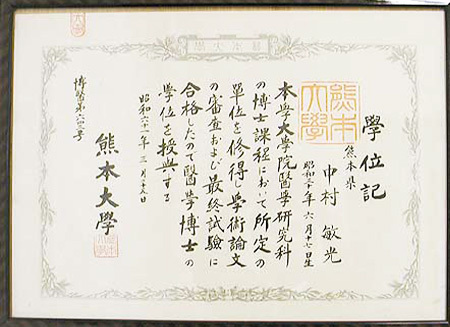 熊本大學
學位記
熊本県
中村 敏光
昭和三十年六月七日生
本學大学院医学研究科
の博士課程において所定の
単位を修得し学術論文
の審査および最終試験に
合格したので医学博士の
學位を授与する
昭和六十一年三月二十八日
熊本大學